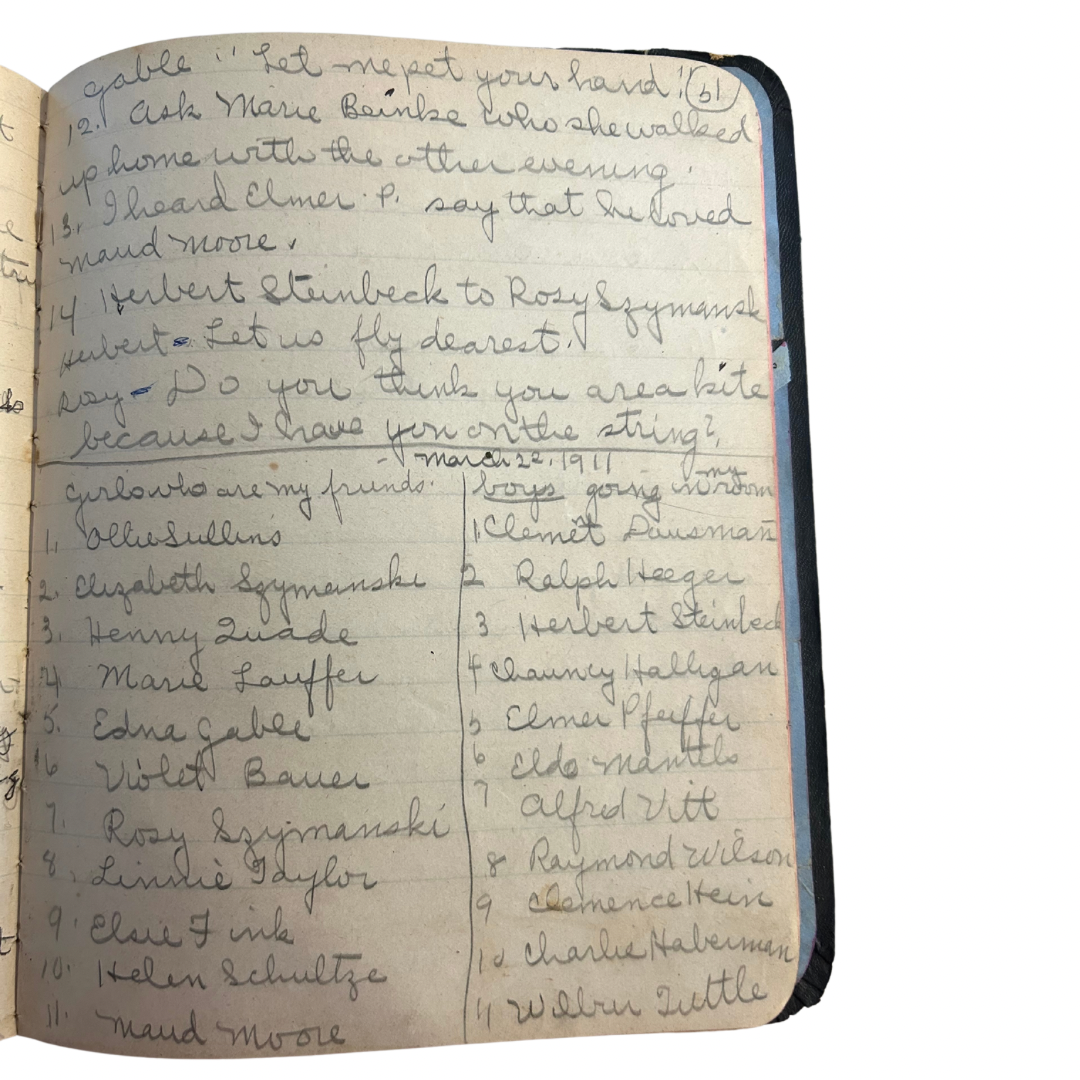 gable : " Let me pet your hand !"
61
12. Ask Marie Beinke who she walked
up home with the other evening.
13. I heard Elmer P. say that he loved
Maud Moore.
14 Herbert Steinbeck to Rosy Szymansk
Herbert - Let us fly dearest.
Rosy - Do you think you are a kite
because I have you on the string?
March 22, 1911
Girls who are my friends.
1. Ollie Sullins
2. Elizabeth Szymanski
3. Henny Quade
4 Marie Lauffer
5. Edna Gable
6 Violet Bauer
7. Rosy Szymanski
8. Linnie Taylor
9. Elsie Fink
10. Helen Schultze
11. Maud Moore
boys going in my room
1. Clemet Dausman
2 Ralph Heeger
3 Herbert Steinbeck
4 Chauncy Halligan
5 Elmer Pfeiffer
6 Eldo Mantels
7 Alfred Vitt
8 Raymond Wilson
9 Clemence Hein
10 Charlie Haberman
11 Wilbur Tuttle